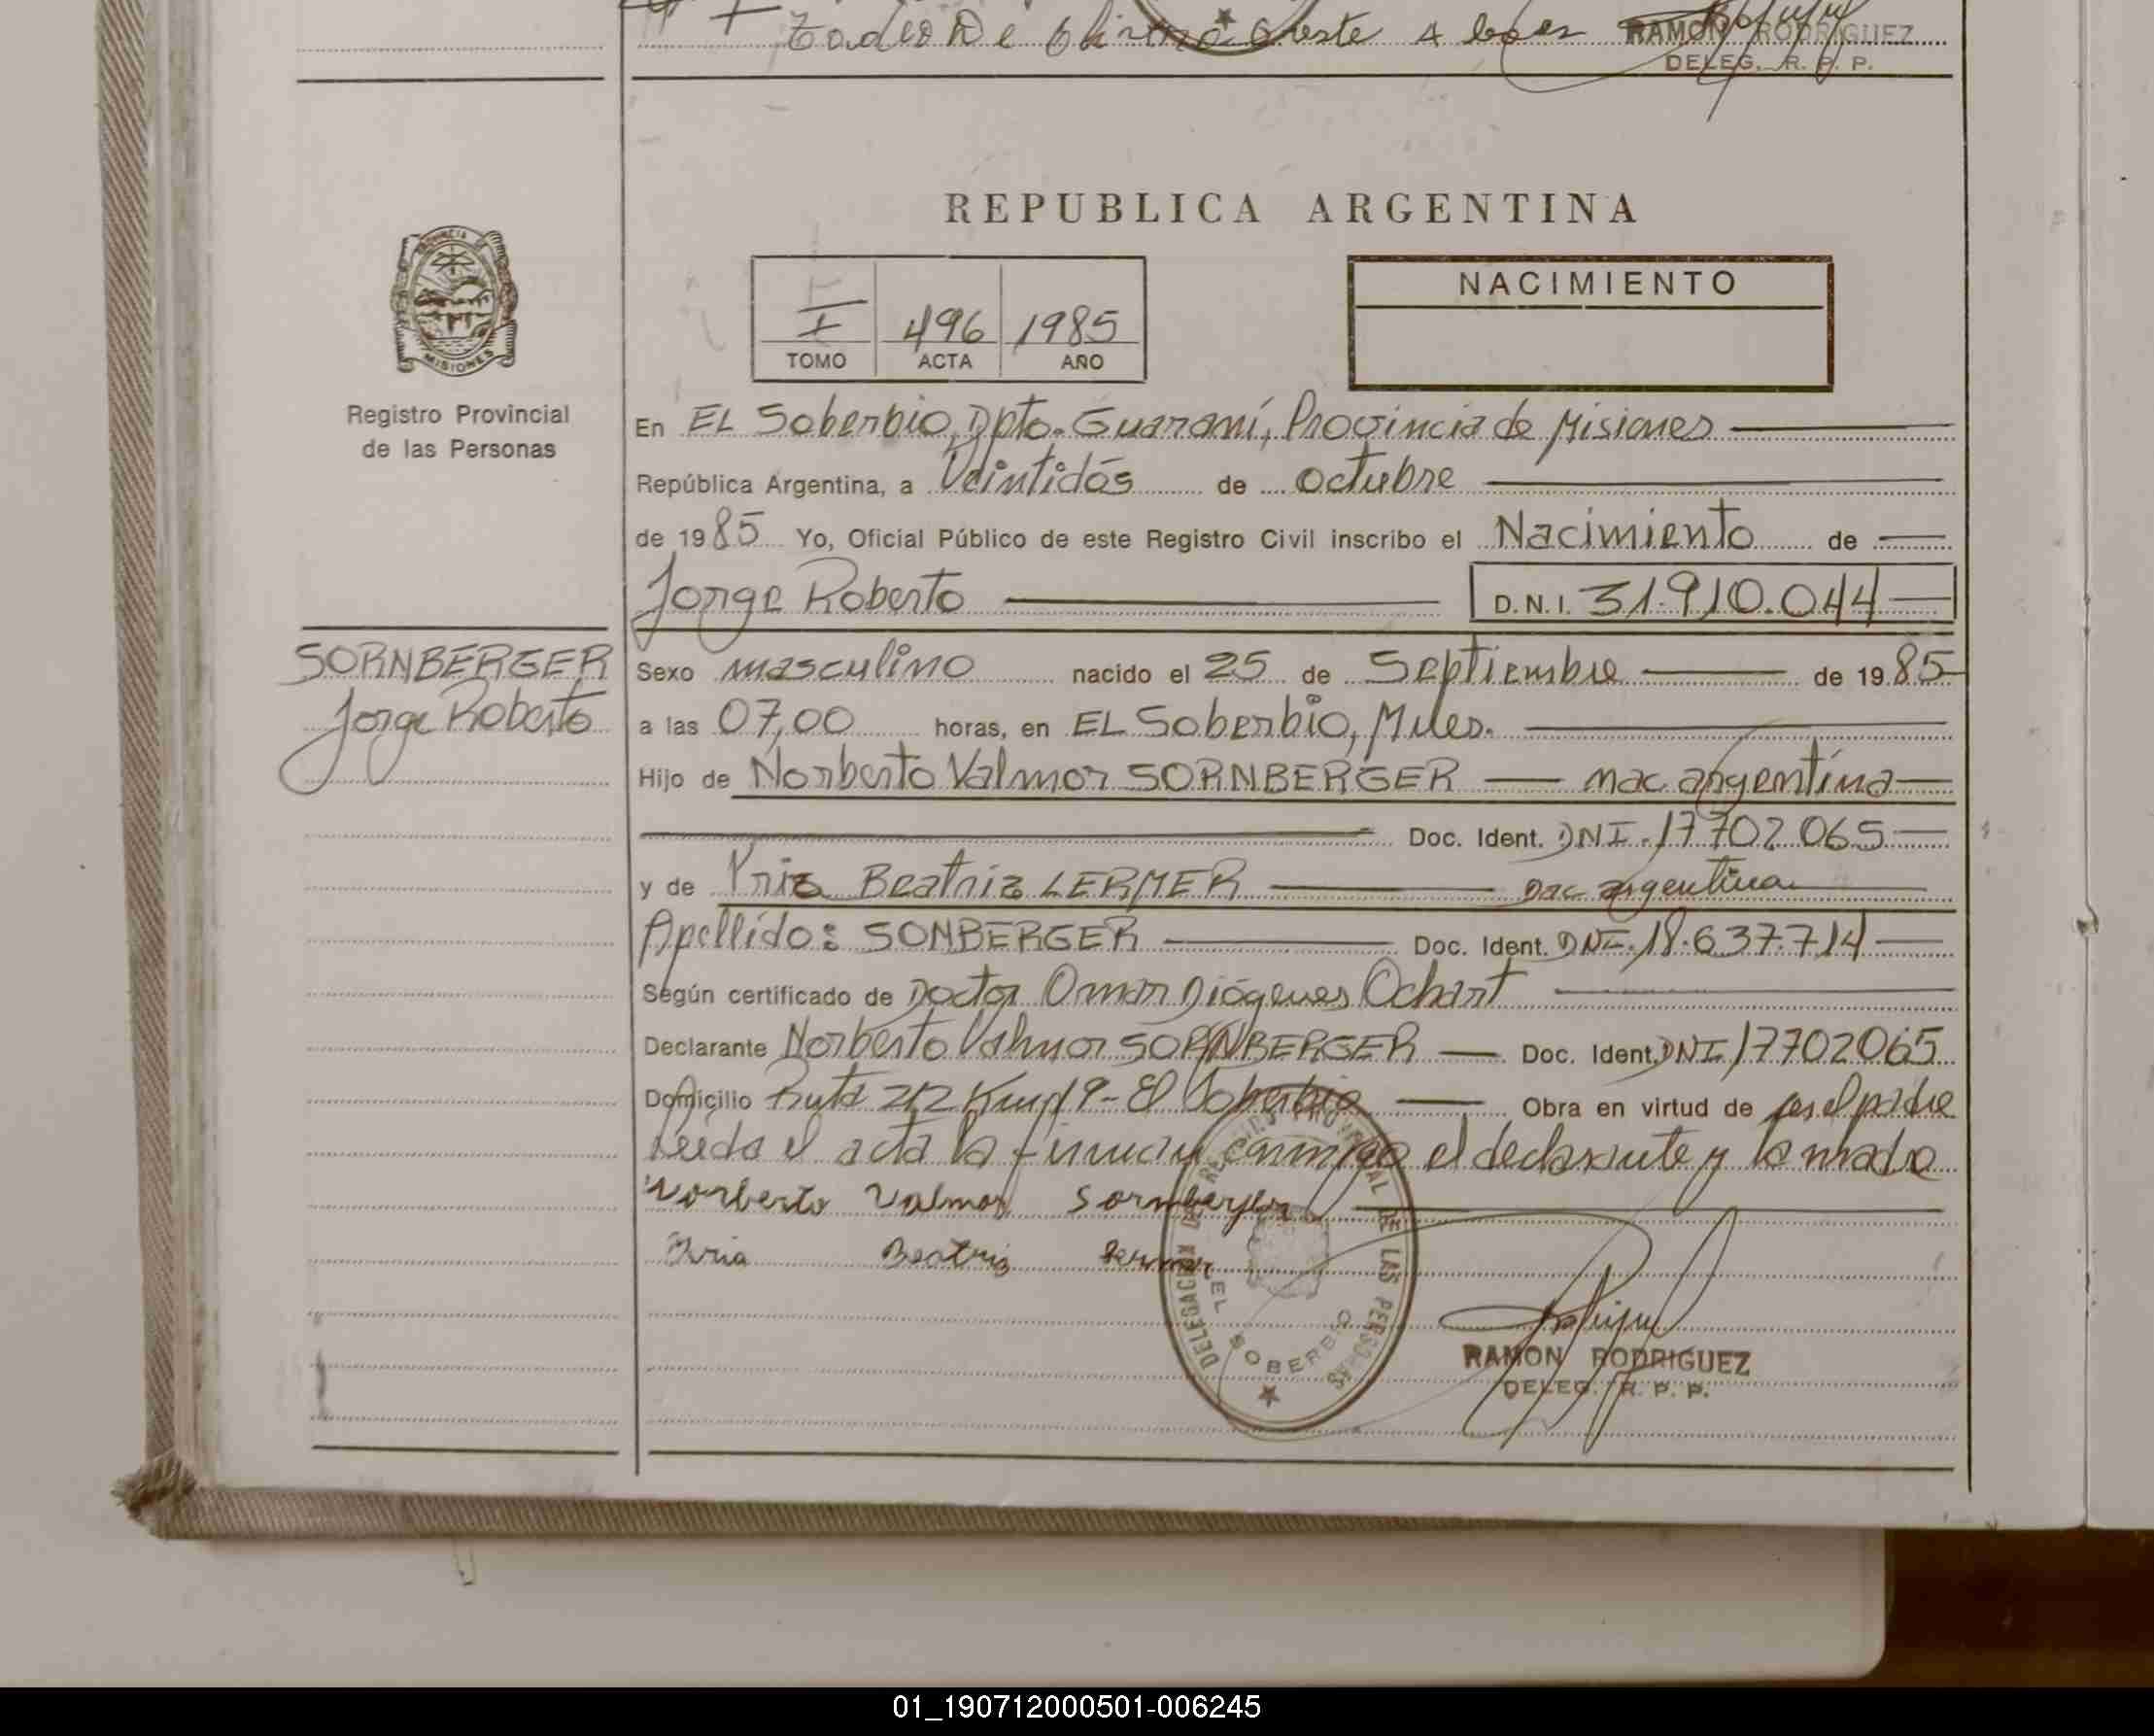 RAMON RODRIGUEZ
DELEG. R. P. P.
REPUBLICA ARGENTINA
PROVINCIA DE MISIONES
Registro Provincial
de las Personas
I 496 1985
TOMO ACTA AÑO
NACIMIENTO
En EL Soberbio, Dpto. Guaraní, Provincia de Misiones
República Argentina, a Veintidós de octubre
de 1985 Yo, Oficial Público de este Registro Civil inscribo el Nacimiento de
Jorge Roberto D.N.I. 31.910.044
SORNBERGER
Jorge Roberto
Sexo masculino nacido el 25 de Septiembre de 1985
a las 07,00 horas, en EL Soberbio, Mnes.
Hijo de Norberto Valmor SORNBERGER nac argentina
Doc. Ident. DNI. 17702065
y de Beatriz LERMER nac argentina
Apellido: SONBERGER Doc. Ident. DNI. 18.637.714
Según certificado de Doctor Omar Diógenes Ochart
Declarante Norberto Valmor SORNBERGER Doc. Ident. DNI 17702065
Domicilio Ruta 212 El Soberbio Obra en virtud de ser el padre
Leída el acta la firman conmigo el declarante y la madre
Norberto Valmor Sornberger
Beatriz Lermer
DELEGACION DEL REGISTRO PROVINCIAL DE LAS PERSONAS
EL SOBERBIO
RAMON RODRIGUEZ
DELEG. R. P. P.
01_190712000501-006245